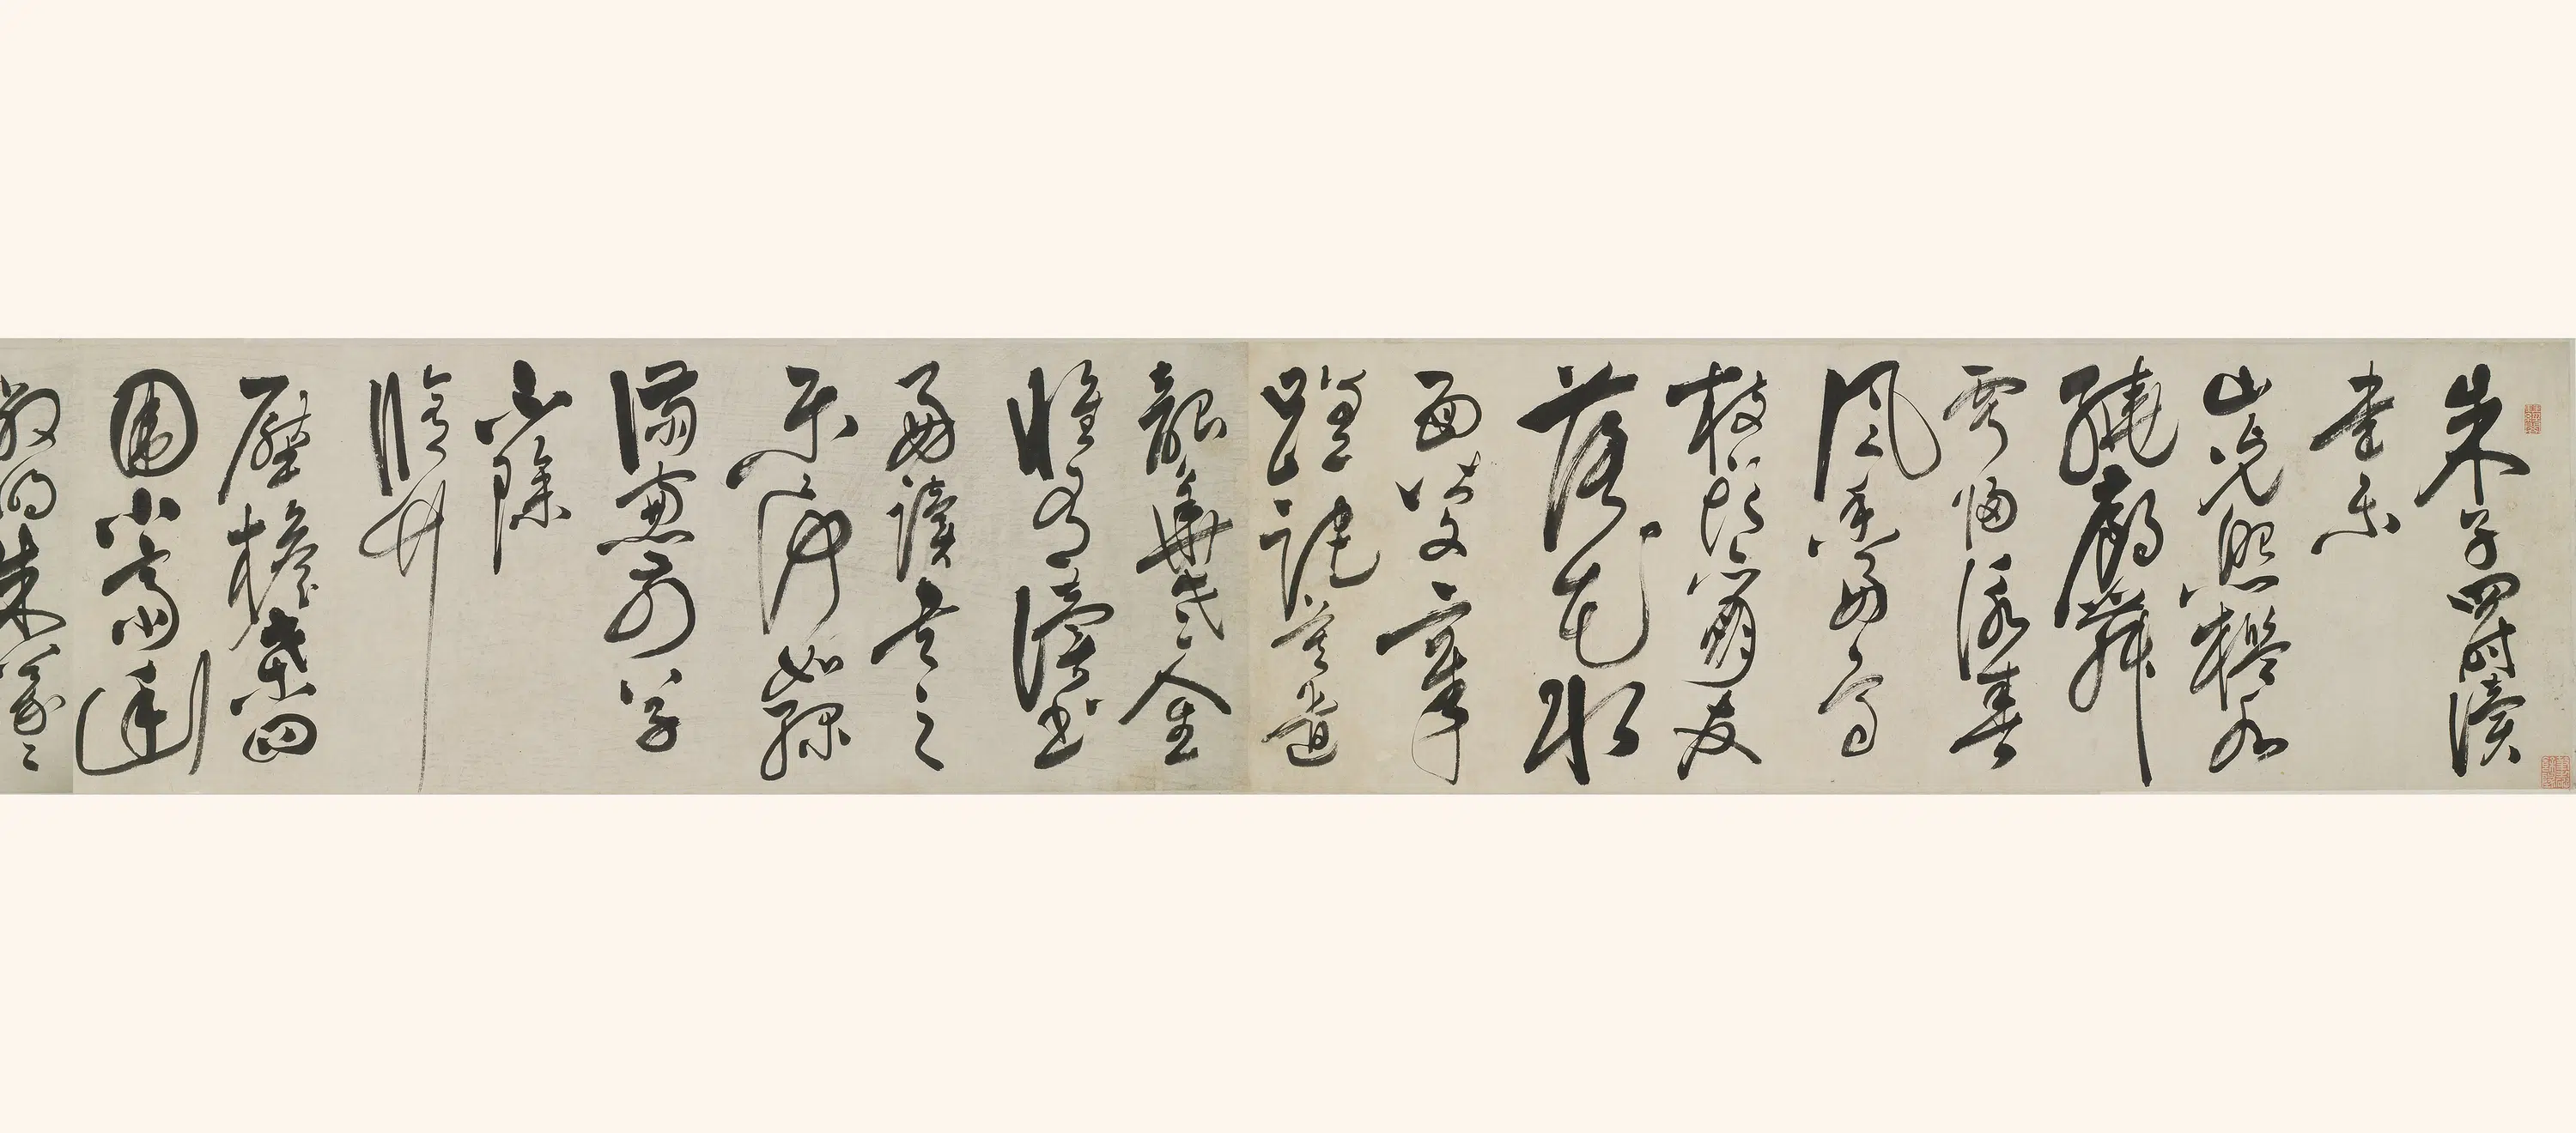 朱子四時讀
書樂
山光照檻水
繞廊舞
雩歸詠春
風香好鳥
枝頭亦朋友
落花水
面皆文章
蹉跎莫遣
韶華老人生
惟有讀書
好讀書之
樂樂何如綠
滿窗前草
不除
修竹
壓檐桑四
圍小齋幽
敞明朱曦